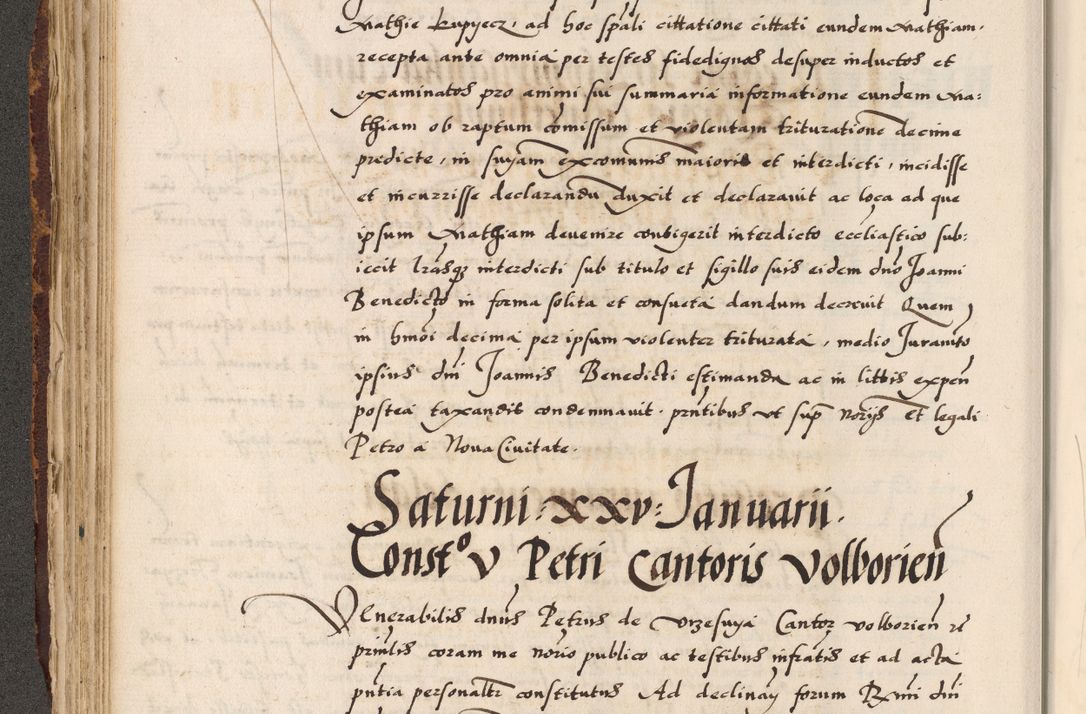 Mathie Kupyecz, ad hoc spāli cittatione cittati eundem Mathiam.
recepta ante omnia per testes fidedignos desuper inductos et
examinatos pro animi sui summaria informatione eundem Ma=
thiam ob raptum comissum et violentam trituratione decime
predicte, in suyam excomunis maioris et interdicti, incidisse
et incurrisse declarandu duxit et declarauit ac loca ad que
ipsum Mathiam deuenire contigerit interdicto eccliastico sub=
iecit lrasqz interdicti sub titulo et sigillo suis eidem dno Joanni
Benedicto in forma solita et consueta dandum decreuit Quem
in hmoi decima per ipsum violenter triturata, medio Juramto
ipsius dni Joannis Benedicti estimanda ac in littis expen
postea taxandis condemnauit. pntibus vt sup norijs Et legali
Petro a Noua Ciuitate.
Saturni xxv Januarii.
Constᵒ v Petri Cantoris Volborien
Venerabilis dnus Petrus de Vrzesuya Cantor volborien
prinlis coram me norio publico ac testibus infratis et ad acta
pntia personaltr constitutus Ad declinay forum Rmi dni